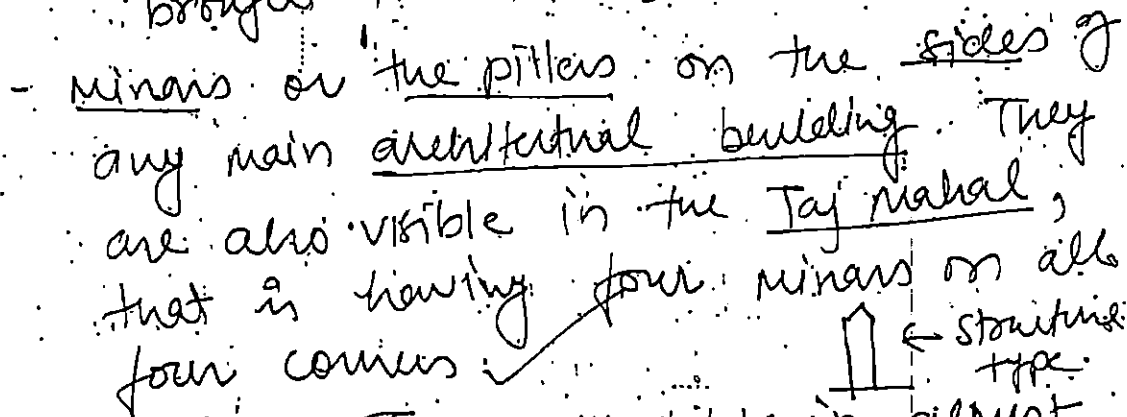 - Minars or the pillers on the sides of
any main architectural building. They
are also visible in the Taj Mahal,
that is having four minars on all
four corners.
← structure
type.